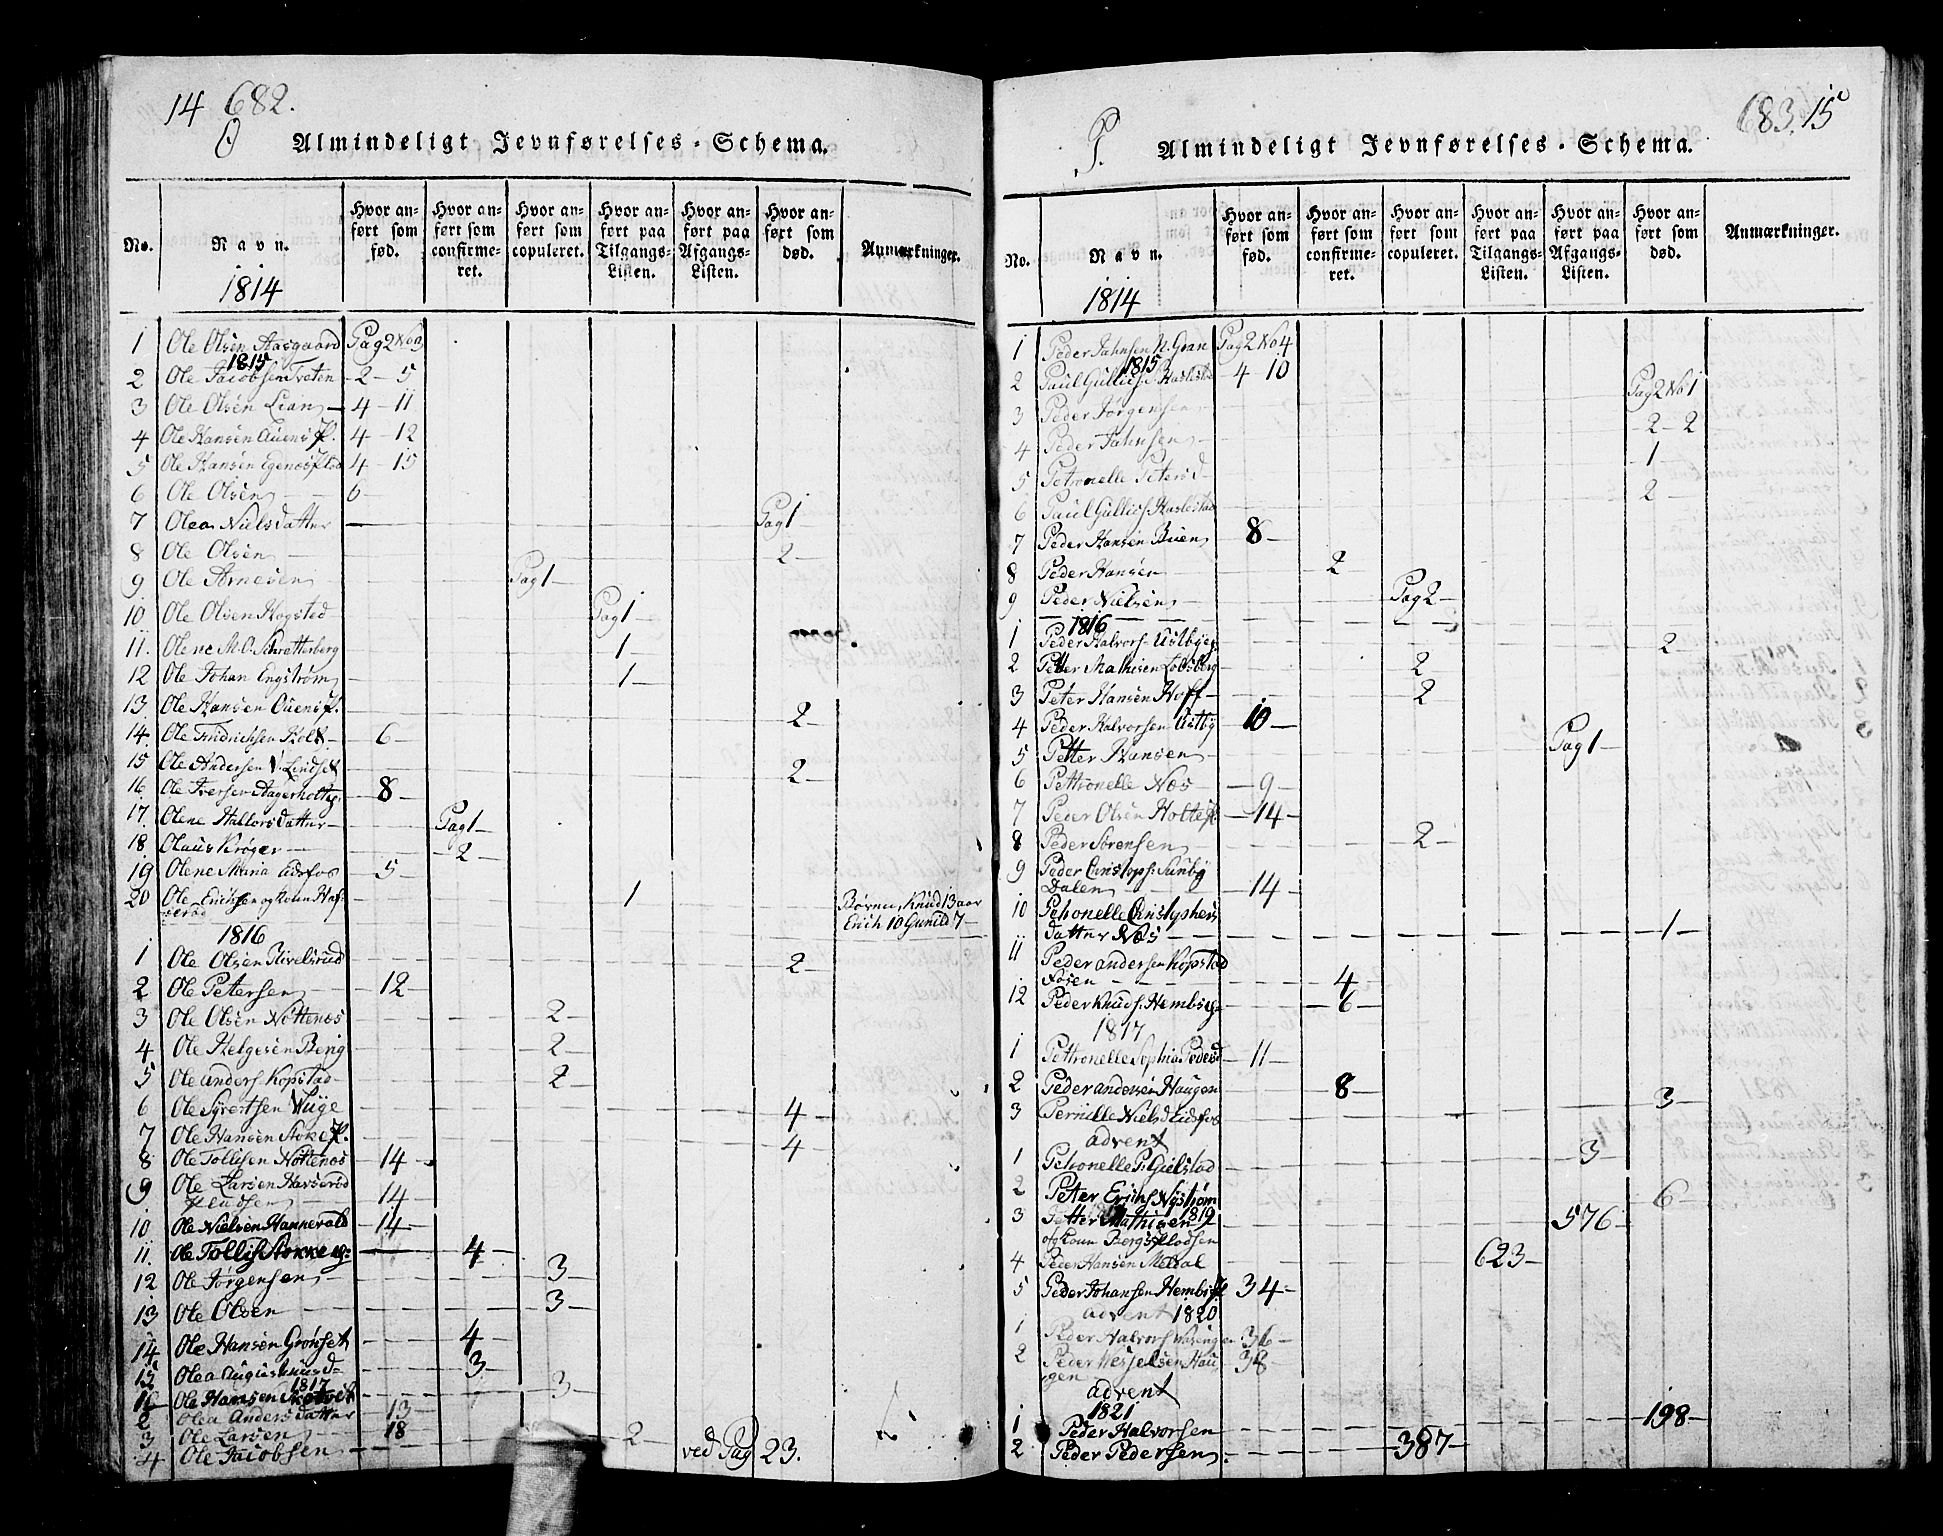 14 682.
O Almindeligt Jevnførelses-Schema.
No. Navn. Hvor anført som fød. Hvor anført som confirmeret. Hvor anført som copuleret. Hvor anført paa Tilgangs-Listen. Hvor anført paa Afgangs-Listen. Hvor anført som død. Anmærkninger.
1814
1 Ole Olsen Aasgaard Pag 2 No 3
1815
2 Ole Jacobsen Tveten 2 - 5
3 Ole Olsen Lian 4 - 11
4 Ole Hansen 4 - 12
5 Ole Hansen 4 - 15
6 Ole Olsen 6
7 Olea Nielsdatter Pag 1
8 Ole Olsen 2
9 Ole Arnesen Pag 1
10 Ole Olsen Hogstad Pag 1
11. Olene M. O. Schretterberg 1
12 Ole Johan Engstrøm 1
13 Ole Hansen 2
14. Ole Fridrichsen Holt 6
15 Ole Andersen 2
16. Ole Iversen 8
17. Olene Halvorsdatter Pag 1
18 Olaus Krøger 2
19 Olene Maria Eidsfos 5
20 Ole Erichsen og Kone 1 Børn: Knud 13 aar
Erich 10 Gunild 7
1816
1 Ole Olsen 2
2 Ole Petersen 12
3 Ole Olsen Nøttenes 2
4 Ole Helgesen Berg 2
5 Ole Anders. Kopstad 2
6 Ole Syvertsen 4
7 Ole Hansen 4
8 Ole Tollefsen Nøttenes 14
9 Ole Larsen
14
10 Ole Nielsen Hannevold 14
11. Ole 4
12 Ole Jørgensen 3
13 Ole Olsen 3
14 Ole Hansen Grønset 4
15 Olea 3
1817
Ole Hansen 3
2 Olea Andersdatter 13
3 Ole Larsen 18
4 Ole Jacobsen 2 ved Pag 23.
683. 15
P. Almindeligt Jevnførelses-Schema.
No. Navn. Hvor anført som fød. Hvor anført som confirmeret. Hvor anført som copuleret. Hvor anført paa Tilgangs-Listen. Hvor anført paa Afgangs-Listen. Hvor anført som død. Anmærkninger.
1814
1 Peder Jahnsen N. Gran Pag 2 No 4
1815
2 Paul Gullichs. Haslestad 4 10
3 Peder Jørgensen Pag 2 No 1
4 Peder Jahnsen 2 - 2
5 Petronelle Petersd 1
6 Paul Gullichs. Haslestad 2
7 Peder Hansen Buen 8
8 Peder Hansen 2
9 Peder Nielsen Pag 2
1816
1 Peder Halvors. 2
2 Petter Mathisen 2
3 Peter Hansen Hoff 2
4 Peder Halvorsen 10
5 Petter Hansen Pag 1
6 Pettronelle Næs 9
7 Peder Olsen 14
8 Peder Sørensen 2
9 Peder Christoph. Sundby
Dalen 14
10 Petronelle Christophers
datter Næs 1
11 Peder Andersen Kopstad
4
12 Peder Knuds. 6
1817
1 Pettronelle Sophia Pedersd 11
2 Peder Andersen Haugen 8
3 Pernille Nielsd Eidsfos 3
advent
1 Petronelle P. Gielstad 3
2 Peter Erichs. Nystrøm 6
1819
3 Petter Mathisen 576
og Kone
4 Peder Hansen 623
5 Peder Johansen 34
advent 1820
1 Peder Halvors. 36
2 Peder Hau 38
gen
advent
1821
1 Peder Halvorsen 198
2 Peder Pedersen 387